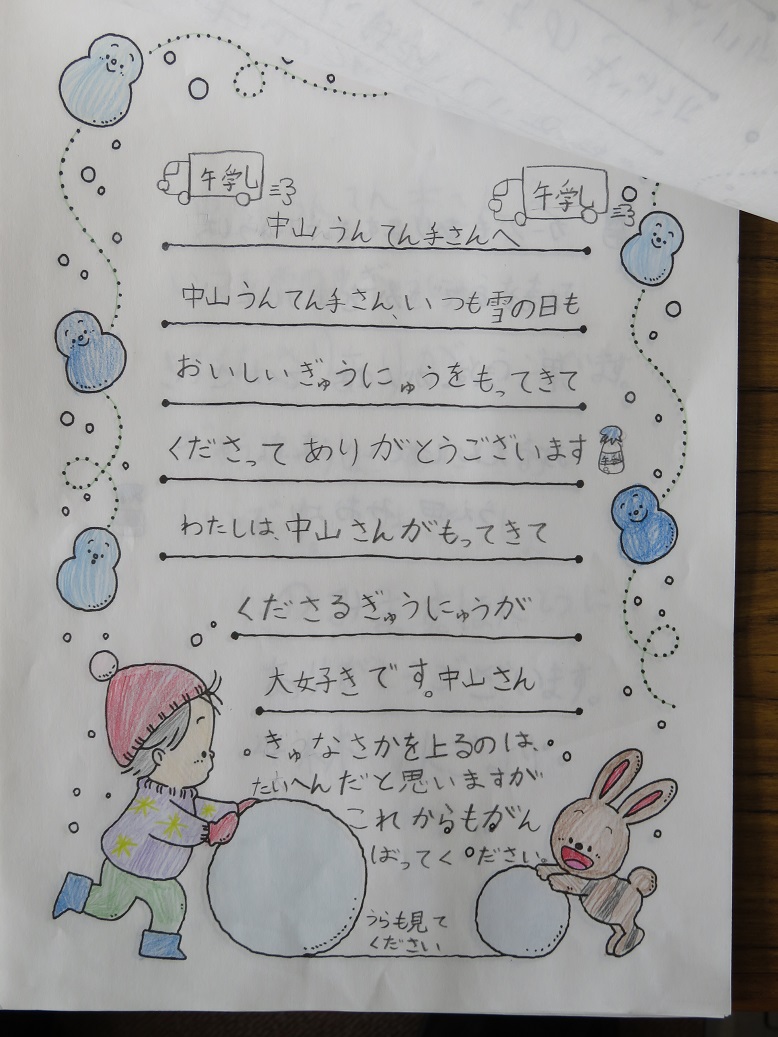 牛乳
牛乳
中山うんてん手さんへ
中山うんてん手さん、いつも雪の日も
おいしいぎゅうにゅうをもってきて
くださって ありがとうございます
牛乳
わたしは、中山さんがもってきて
くださるぎゅうにゅうが
大好きです。中山さん
きゅなさかを上るのは、
たいへんだと思いますが
これからもがん
ばってください。
うらも見て
ください